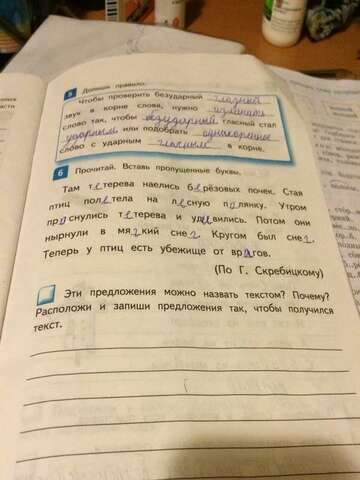 5 Допиши правило.
Чтобы проверить безударный гласный
звук в корне слова, нужно изменить
слово так, чтобы безударный гласный стал
ударным или подобрать однокоренное
слово с ударным гласным в корне.
6 Прочитай. Вставь пропущенные буквы.
Там тетерева наелись берёзовых почек. Стая
птиц полетела на лесную полянку. Утром
проснулись тетерева и удивились. Потом они
нырнули в мягкий снег. Кругом был снег.
Теперь у птиц есть убежище от врагов.
(По Г. Скребицкому)
Эти предложения можно назвать текстом? Почему?
Расположи и запиши предложения так, чтобы получился
текст.